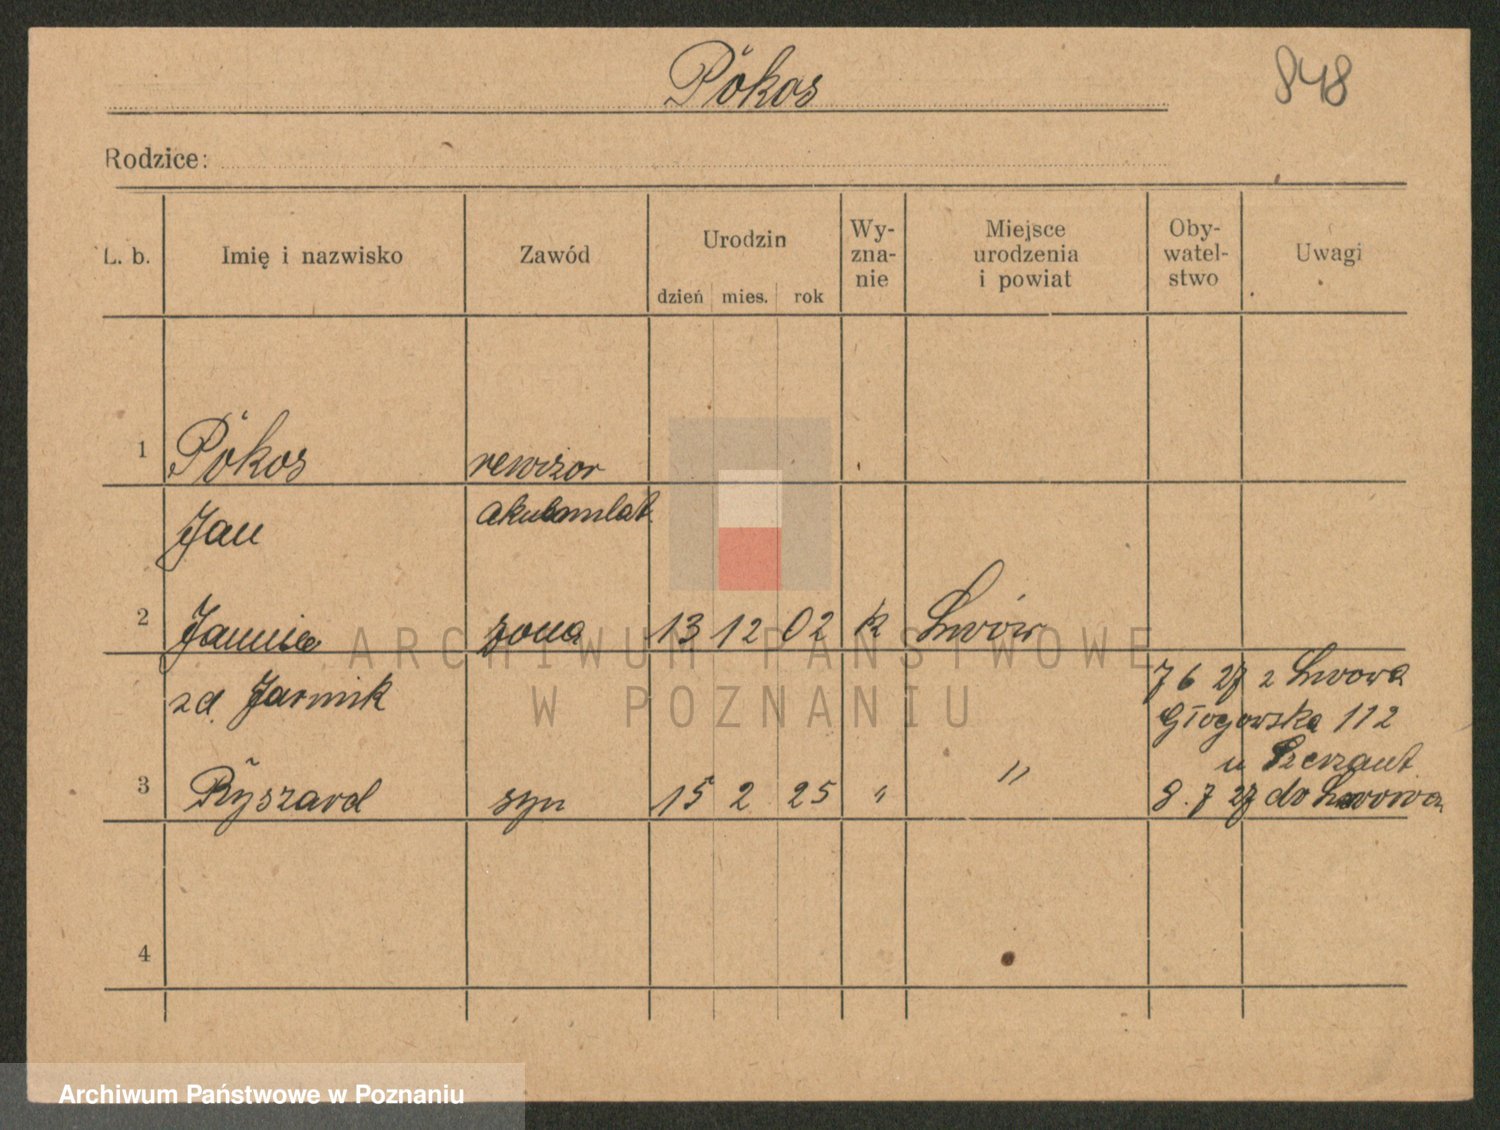 Pókos 848
Rodzice:
L. b. Imię i nazwisko Zawód Urodzin dzień mies. rok Wy-zna-nie Miejsce urodzenia i powiat Oby-watel-stwo Uwagi
1 Pókos rewizor
Jan akubmlat
2 Janina żona 13 12 02 k Lwów
zd. Jarmik 7 6 27 z Lwowa
Głogowska 112
u
3 Ryszard syn 15 2 25 " " 8.7 27 do Lwowa
4
ARCHIWUM PAŃSTWOWE
W POZNANIU
Archiwum Państwowe w Poznaniu